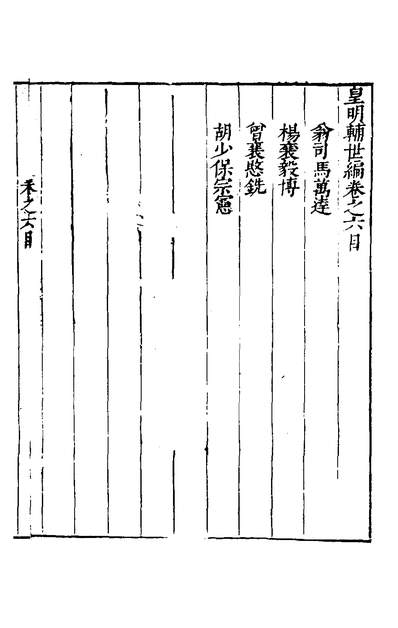 皇明輔世編卷之六目
翁司馬萬達
楊襄毅博
曾襄愍銑
胡少保宗憲
卷之六目